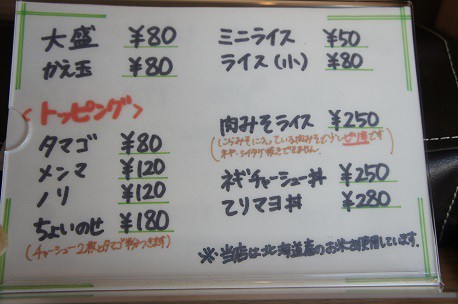 大盛 ¥80
かえ玉 ¥80
<トッピング>
タマゴ ¥80
メンマ ¥120
ノリ ¥120
ちょいのせ ¥180
(チャーシュー2枚とタマゴ半分つきます)
ミニライス ¥50
ライス(小) ¥80
肉みそライス ¥250
(こがらみそに入っている肉みそで少しピリ辛です
ネギ、シイタケ抜きできません。)
ネギチャーシュー丼 ¥250
てりマヨ丼 ¥280
※当店は北海道産のお米を使用しています。